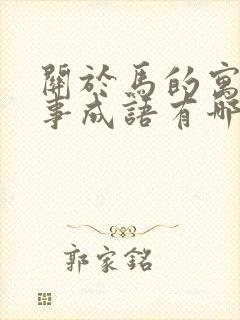 關於馬的寓
事成語有哪
郭家銘